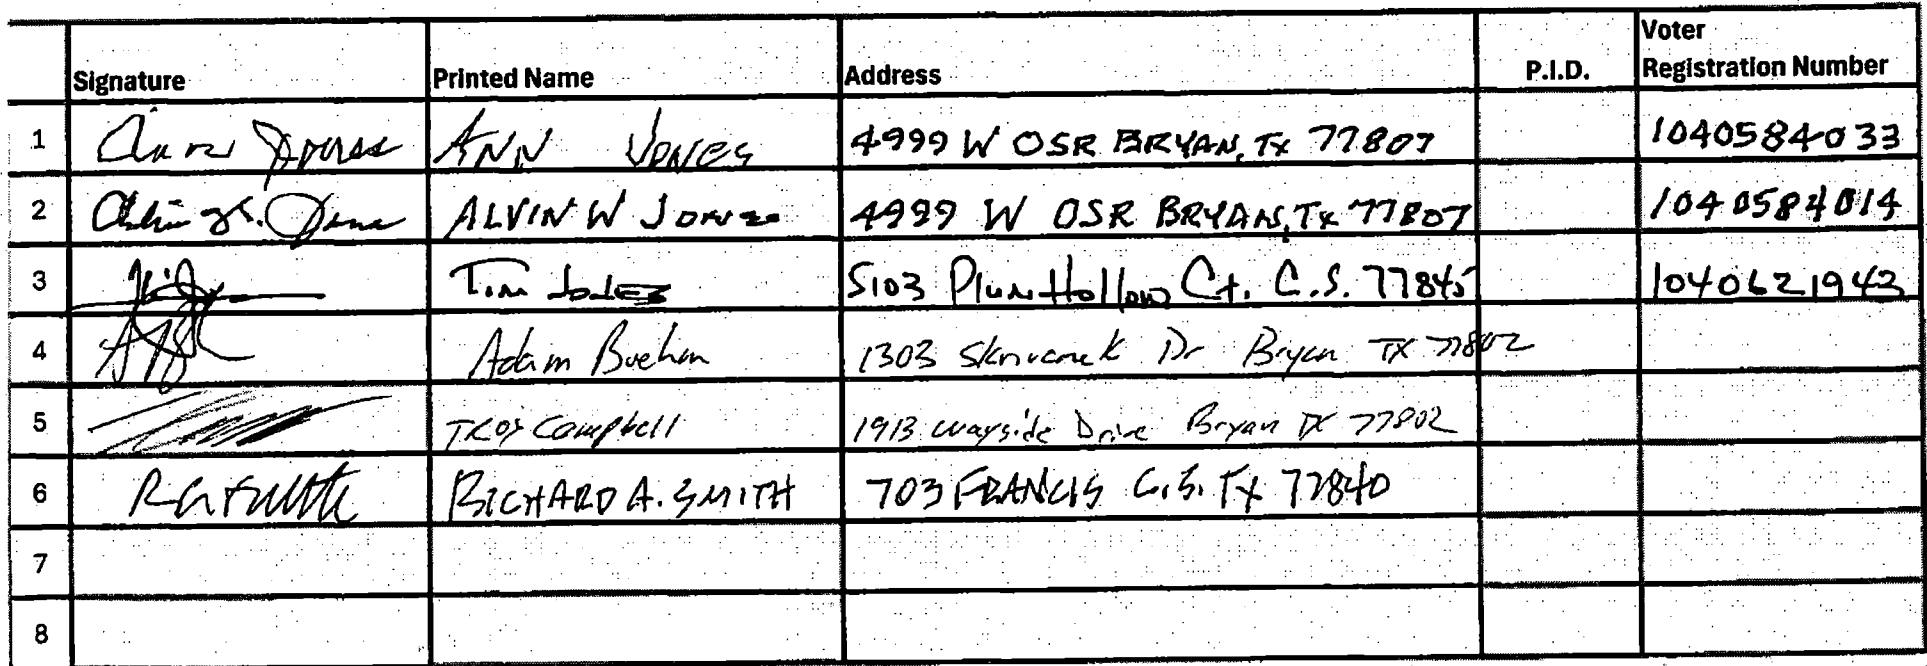 Signature Printed Name Address P.I.D. Voter Registration Number
1 Ann Jones ANN JONES 4999 W OSR BRYAN, TX 77807 1040584033
2 Alvin W. Jones ALVIN W JONES 4999 W OSR BRYAN, TX 77807 1040584014
3 Tim Jones 5103 Plum Hollow Ct. C.S. 77845 1040621943
4 Adam Buehm 1303 Skrivanek Dr Bryan TX 77802
5 TROY Campbell 1913 wayside Drive Bryan TX 77802
6 RICHARD A. SMITH 703 FRANCIS C.S. TX 77840
7
8